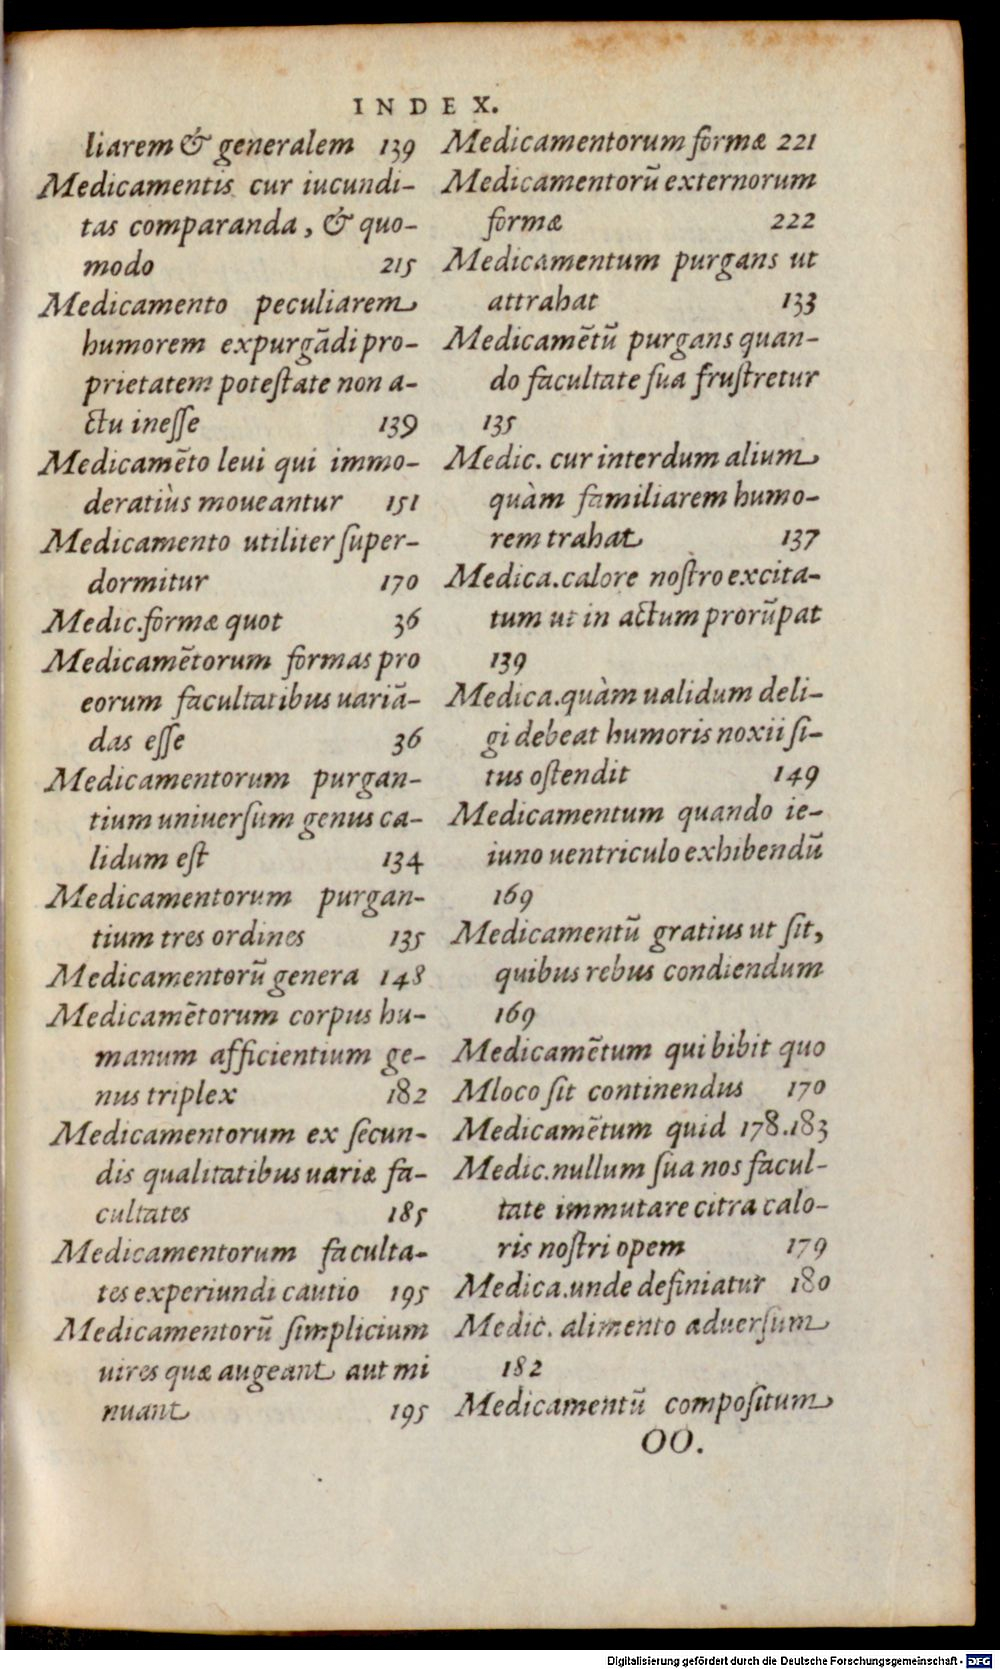 INDEX.
liarem & generalem 139
Medicamentis cur iucundi-
tas comparanda, & quo-
modo 215
Medicamento peculiarem
humorem expurgãdi pro-
prietatem poteſtate non a-
ctu ineſſe 139
Medicamẽto leui qui immo-
deratiùs moueantur 151
Medicamento utiliter ſuper-
dormitur 170
Medic.formæ quot 36
Medicamẽtorum formas pro
eorum facultatibus uariã-
das eſſe 36
Medicamentorum purgan-
tium uniuerſum genus ca-
lidum eſt 134
Medicamentorum purgan-
tium tres ordines 135
Medicamentorũ genera 148
Medicamẽtorum corpus hu-
manum afficientium ge-
nus triplex 182
Medicamentorum ex ſecun-
dis qualitatibus uariæ fa-
cultates 185
Medicamentorum faculta-
tes experiundi cautio 195
Medicamentorũ ſimplicium
uires quæ augeant aut mi
nuant 195
Medicamentorum formæ 221
Medicamentorũ externorum
formæ 222
Medicamentum purgans ut
attrahat 133
Medicamẽtũ purgans quan-
do facultate ſua fruſtretur
135
Medic. cur interdum alium
quàm familiarem humo-
rem trahat 137
Medica.calore noſtro excita-
tum ut in actum prorũpat
139
Medica.quàm ualidum deli-
gi debeat humoris noxii ſi-
tus oſtendit 149
Medicamentum quando ie-
iuno uentriculo exhibendũ
169
Medicamentũ gratius ut ſit,
quibus rebus condiendum
169
Medicamẽtum qui bibit quo
Mloco ſit continendus 170
Medicamẽtum quid 178.183
Medic.nullum ſua nos facul-
tate immutare citra calo-
ris noſtri opem 179
Medica.unde definiatur 180
Medic. alimento aduerſum
182
Medicamentũ compoſitum
OO.
Digitalisierung gefördert durch die Deutsche Forschungsgemeinschaft - DFG